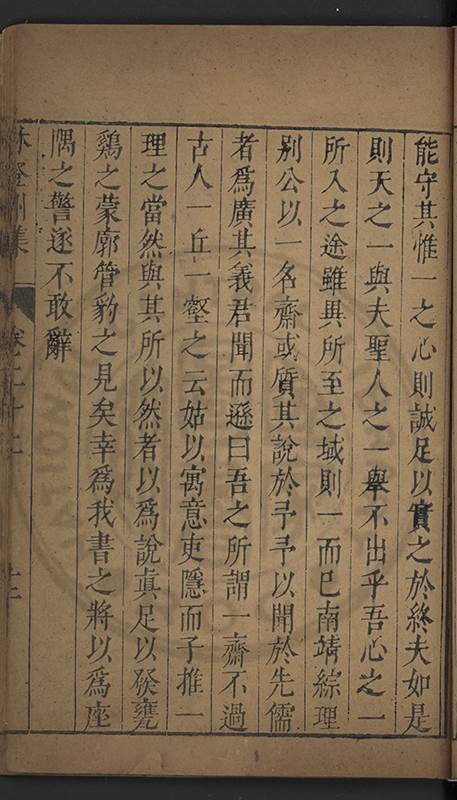 能守其惟一之心則誠足以實之於終夫如是
則天之一與夫聖人之一舉不出乎吾心之一
所入之途雖異所至之域則一而已南靖綜理
別公以一名齋或質其說於予予以聞於先儒
者爲廣其義君聞而遜曰吾之所謂一齋不過
古人一丘一壑之云姑以寓意吏隱而子推一
理之當然與其所以然者以爲說眞足以發甕
鷄之蒙廓管豹之見矣幸爲我書之將以爲座
隅之警遂不敢辭
集